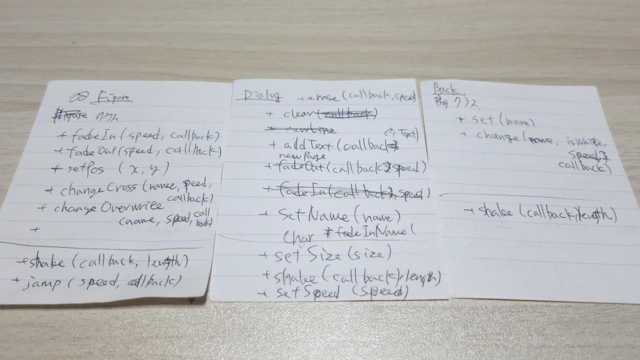 Figure
クラス
+ fadeIn (speed, callback)
+ fadeOut (speed, callback)
+ setPos (x, y)
+ changeCross (name, speed, callback)
+ changeOverwrite (name, speed, callback)
+
+ shake (callback, length)
+ jamp (speed, callback)
Dialog
+ erase (callback, speed)
+ clear (callback)
+ addText (callback, Text)
newPage
+ fadeOut (callback, speed)
+ fadeIn (callback, speed)
+ setName (name)
char fadeInName (
+ setSize (size)
+ shake (callback, length)
+ setSpeed (speed)
Back
クラス
+ set (name)
+ change (name, isWhite, speed, callback)
+ shake (callback, length)